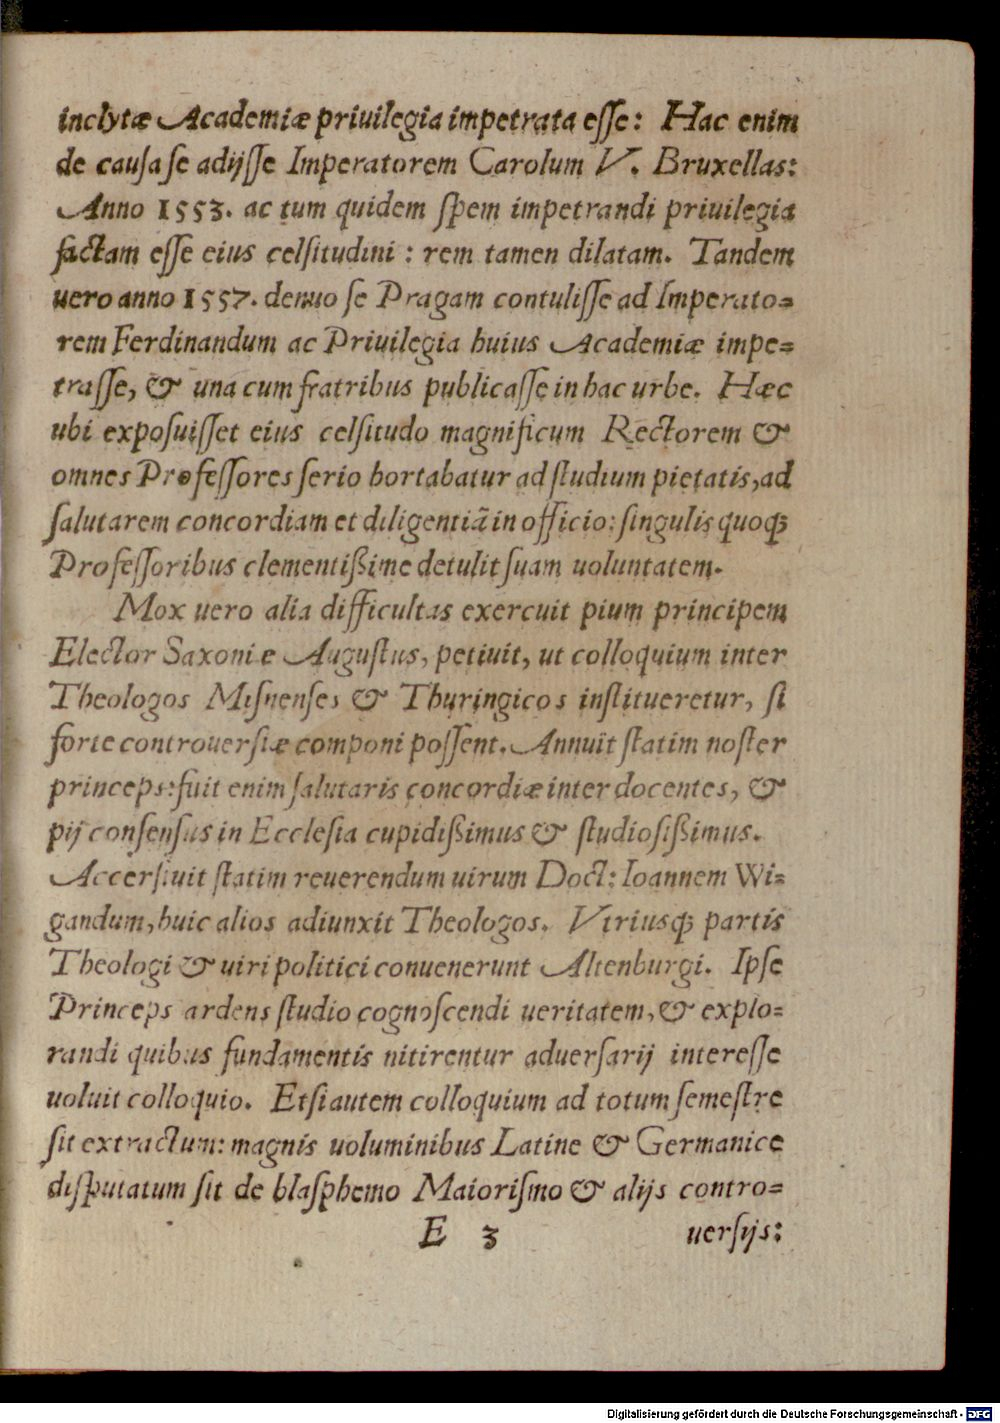 inclytæ Academiæ priuilegia impetrata eſſe: Hac enim
de cauſa ſe adijſſe Imperatorem Carolum V. Bruxellas:
Anno 1553. ac tum quidem ſpem impetrandi priuilegia
factam eſſe eius celſitudini: rem tamen dilatam. Tandem
uero anno 1557. denuo ſe Pragam contuliſſe ad Imperato=
rem Ferdinandum ac Priuilegia huius Academiæ impe=
traſſe, & una cum fratribus publicaſſe in hac urbe. Hæc
ubi expoſuiſſet eius celſitudo magnificum Rectorem &
omnes Profeſſores ſerio hortabatur ad ſtudium pietatis, ad
ſalutarem concordiam et diligentiã in officio: ſingulis quoqꝫ
Profeſſoribus clementißime detulit ſuam uoluntatem.
Mox uero alia difficultas exercuit pium principem
Elector Saxoniæ Auguſtus, petiuit, ut colloquium inter
Theologos Miſnenſes & Thuringicos inſtitueretur, ſi
forte controuerſiæ componi poſſent. Annuit ſtatim noſter
princeps: fuit enim ſalutaris concordiæ inter docentes, &
pij conſenſus in Eccleſia cupidißimus & ſtudioſißimus.
Accerſiuit ſtatim reuerendum uirum Doct: Ioannem Wi=
gandum, huic alios adiunxit Theologos. Vtriusqꝫ partis
Theologi & uiri politici conuenerunt Altenburgi. Ipſe
Princeps ardens ſtudio cognoſcendi ueritatem, & explo=
randi quibus fundamentis nitirentur aduerſarij intereſſe
uoluit colloquio. Etſi autem colloquium ad totum ſemeſtre
ſit extractum: magnis uoluminibus Latine & Germanice
diſputatum ſit de blaſphemo Maioriſmo & alijs contro=
E 3 uerſijs:
Digitalisierung gefördert durch die Deutsche Forschungsgemeinschaft - DFG